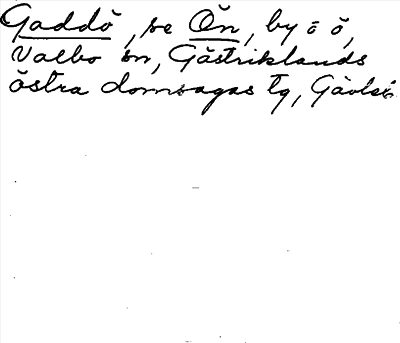 Gaddö, se Ön, by o ö,
Valbo sn, Gästriklands
östra domsagas tg, Gävle